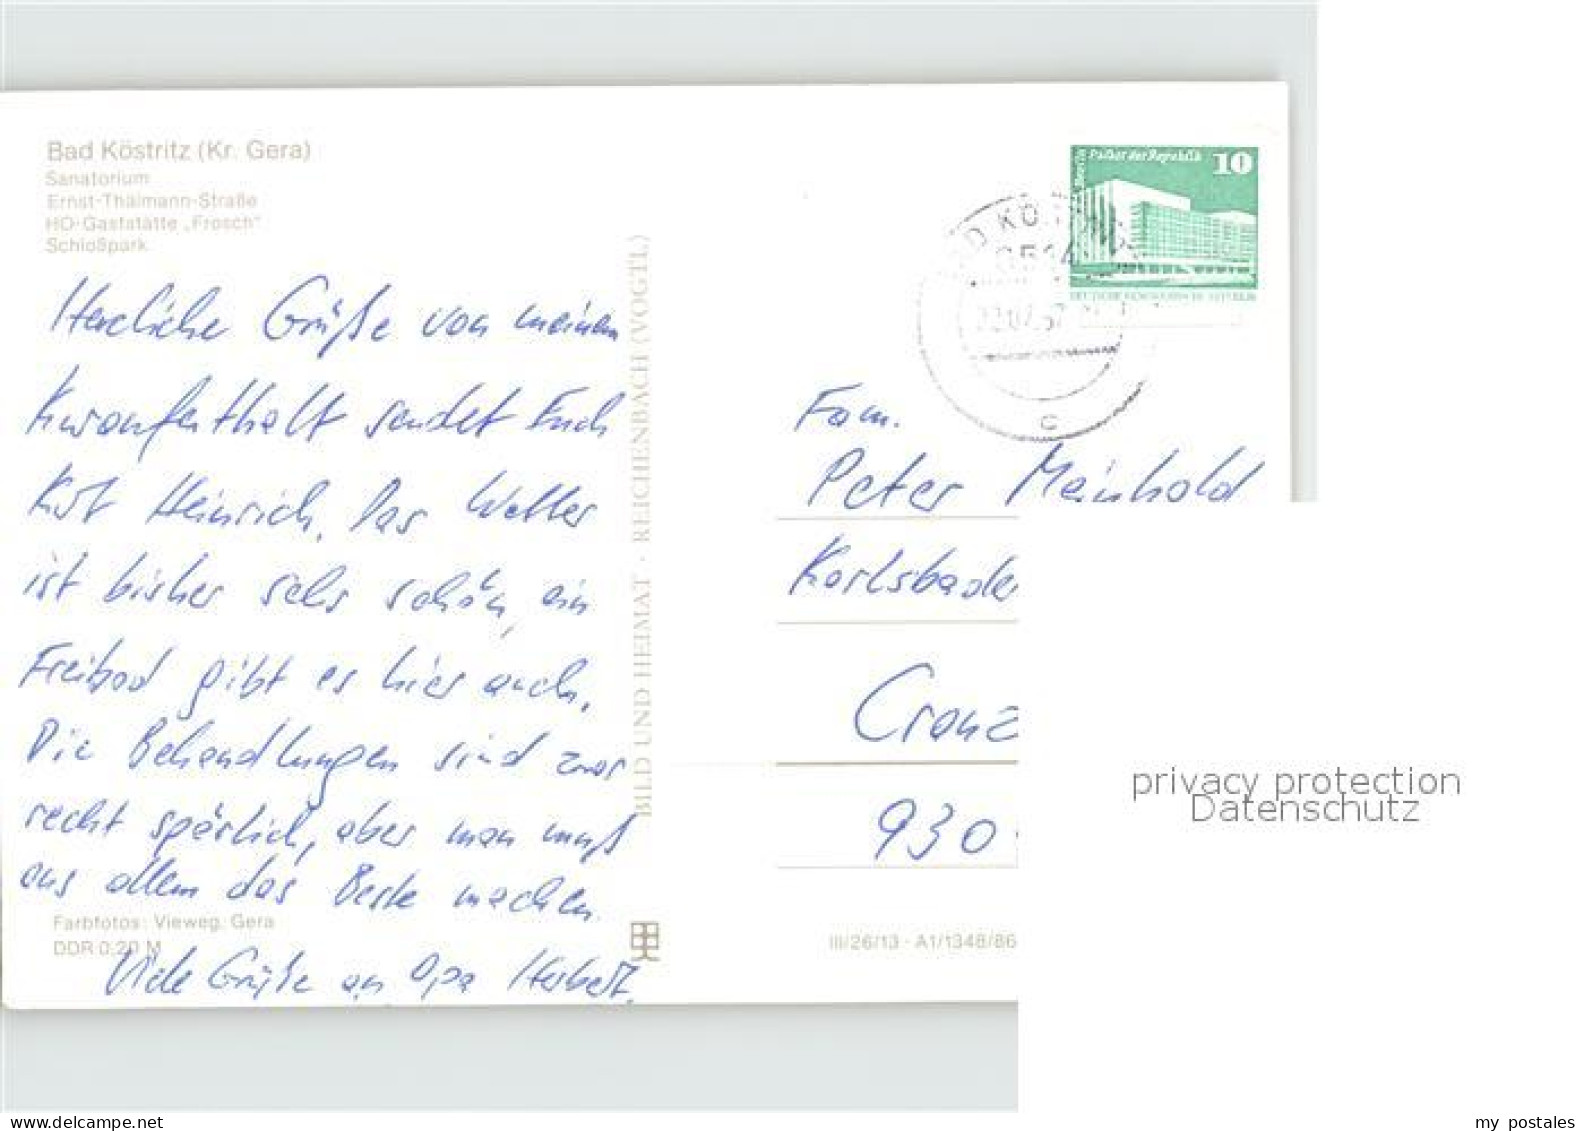 Bad Köstritz (Kr. Gera)
Sanatorium
Ernst-Thälmann-Straße
HO-Gaststätte „Frosch“
Schloßpark
Herzliche Grüße von meinem
Kuraufenthalt sendet Euch
Kurt Heinrich. Das Wetter
ist bisher sehr schön, ein
Freibad gibt es hier auch.
Die Behandlungen sind zwar
recht spärlich, aber man muß
aus allem das Beste machen.
Viele Grüße an Opa Herbert.
Farbfotos: Vieweg, Gera
DDR 0,20 M
BILD UND HEIMAT · REICHENBACH (VOGTL.)
Berlin Palast der Republik 10
DEUTSCHE DEMOKRATISCHE REPUBLIK
c
Fam.
Peter Meinhold
Karlsbader
Cranz
930
III/26/13 · A1/1348/86
privacy protection
Datenschutz
my postales